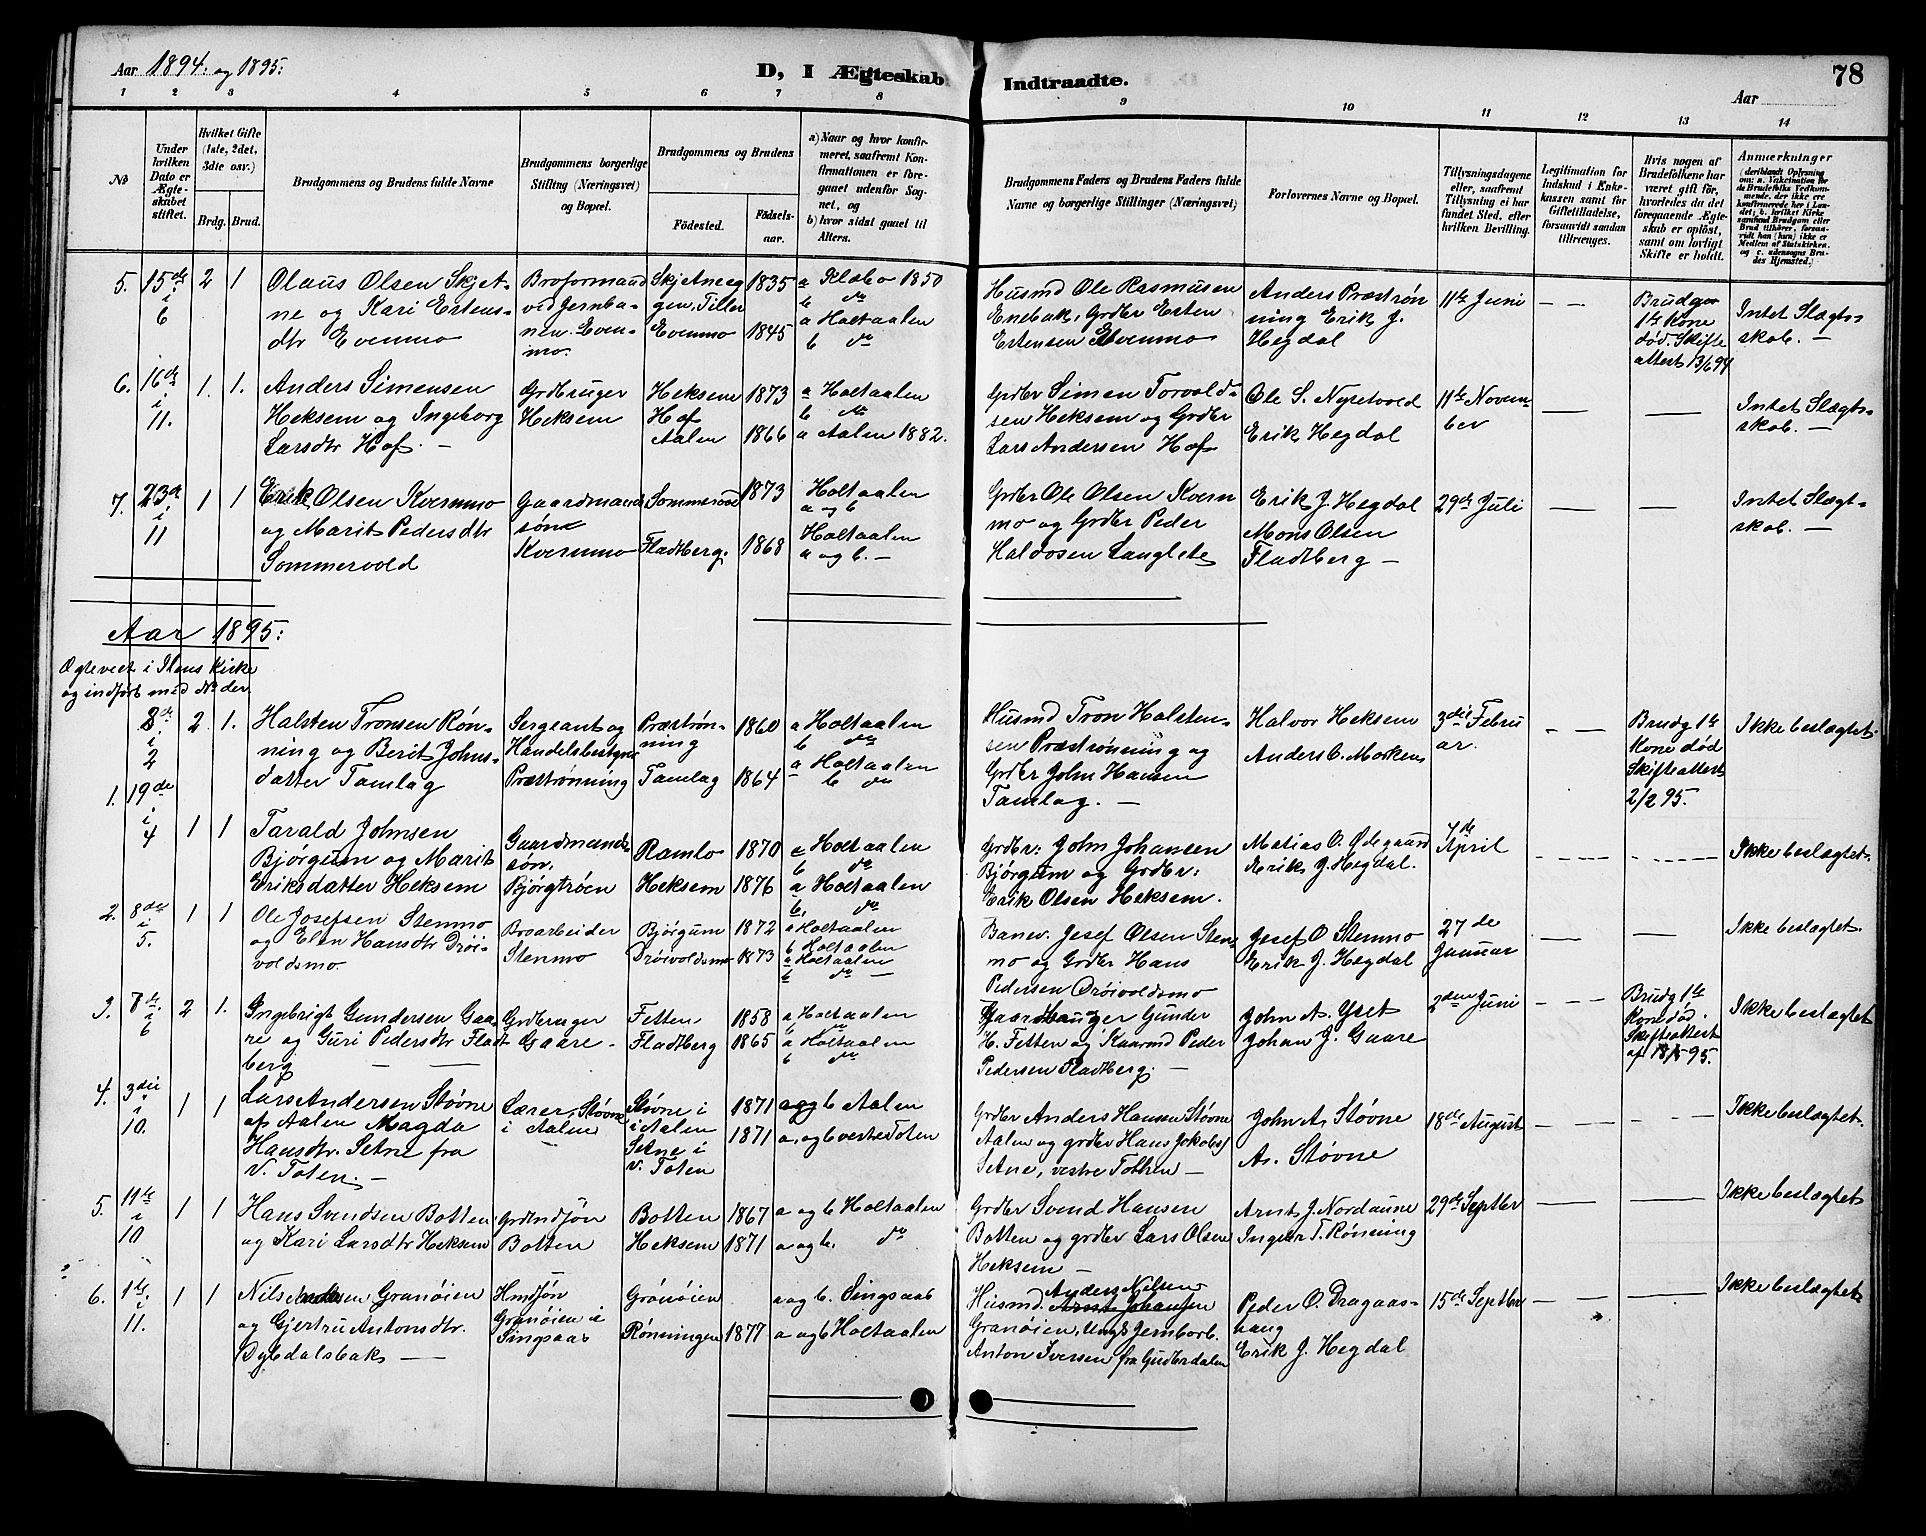 Aar 1894. og 1895.
D, I Ægteskab Indtraadte.
78
Aar
1 2 3 4 5 6 7 8 9 10 11 12 13 14
No
Under hvilken Dato er Ægteskabet stiftet.
Hvilket Gifte (1ste, 2det, 3die osv.)
Brdg. Brud.
Brudgommens og Brudens fulde Navne
Brudgommens borgerlige Stilling (Næringsvei) og Bopæl.
Brudgommens og Brudens
Födested.
Födselsaar.
a) Naar og hvor konfirmeret, saafremt Konfirmationen er foregaaet udenfor Sognet, og
b) hvor sidst gaaet til Alters.
Brudgommens Faders og Brudens Faders fulde Navne og borgerlige Stillinger (Næringsvei)
Forlovernes Navne og Bopæl.
Tillysningsdagene eller, saafremt Tillysning ei har fundet Sted, efter hvilken Bevilling.
Legitimation for Indskud i Enkekassen samt for Giftetilladelse, forsaavidt saadan tiltrænges.
Hvis nogen af Brudefolkene har været gift før, hvorledes da det foregaaende Ægteskab er opløst, samt om lovligt Skifte er holdt.
Anmærkninger
5. 15de i 6 2 1
Olaus Olsen Skjetne og Kari Estensdtr Evenmo
Broformand ved Jernbanen. Evenmo.
Skjetne eg gen, Tiller 1835
Evenmo 1845
a Klæbo 1850
b do
a Holtaalen
b do
Husmd Ole Rasmusen Enebak, Grdbr Esten Estensen Evenmo
Anders Præstrønning Erik J. Hegdal
11te Juni
— —
Brudgo 1te Kone død. Skifteattest 13/6 94
Intet Slægtskab. —
6. 16de i 11. 1. 1.
Anders Simensen Heksem og Ingeborg Larsdtr Hof. —
Grdbruger Heksem
Heksem 1873
Hof Aalen 1866
a Holtaalen
b do
a Aalen 1882.
Grdbr Simen Torvaldsen Heksem og Grdbr Lars Andersen Hof
Ole S. Nyretvold
Erik Hegdal
11te November
—
—
Intet Slægtskab. —
7. 23de i 11 1 1
Erik Olsen Kvernmo og Marit Pedersdtr Sommervold
Gaardmands søn Kvernmo
Sommervold 1873
Fladtberg. 1868
Holtaalen a og b
Holtaalen a og b. —
Grdbr Ole Olsen Kvernmo og Grdbr Peder Haldosen Langlete
Erik J. Hegdal
Mons Olsen Fladtberg —
29de Juli
—
—
Intet Slægtskab. —
Aar 1895:
Ægteviet i Ilens Kirke og indført med No der.
8de i 2 2 1.
Halsten Tronsen Rønning og Berit Johnsdatter Tamlag
Sergeant og Handelsbestyrer Præstrønning
Præstrønning 1860
Tamlag 1864
a Holtaalen
b do
a Holtaalen
b do
Husmd Tron Halstensen Præstrønning og Grdbr John Hansen Tamlag. —
Halvor Heksem
Anders C. Morken
3die Februar.
— —
Brudg 1te Kone død Skifteattest 2/2 95.
Ikke beslægtet.
1. 19de i 4 1 1
Tarald Johnsen Bjørgum og Marit Eriksdatter Heksem
Gaardmandssøn. Bjørgtrøen
Ramlo 1870
Heksem 1876
a Holtaalen
b do
a Holtaalen
b. do
Grdbr: John Johansen Bjørgum og Grdbr: Erik Olsen Heksem.
Matias O. Ødegaard
Erik J. Hegdal.
7de April
Ikke beslægtet.
2. 8de i 5. 1 1
Ole Josefsen Stenmo og Elen Hansdtr Drøivoldsmo.
Broarbeider Stenmo
Bjørgum 1872
Drøivoldsmo 1873
a Holtaalen
b Holtaalen
a Holtaalen
b do —
Banev. Josef Olsen Stenmo og Grdbr Hans Pedersen Drøivoldsmo
Josef O Stenmo
Erik J. Hegdal
27de Januar
—
—
Ikke beslægtet.
3. 7de i 6 2 1.
Ingebrigt Gundersen Gaare og Guri Pedersdtr Fladtberg — —
Grdbruger Gaare —
Fetten 1858
Fladtberg 1865
a Holtaalen
b do
a Holtaalen
b do
Gaardbruger Gunder H. Fetten og Kaarmd Peder Pedersen Fladtberg. —
John A. Yset
Johan J. Gaare
2den Juni
— —
Brudg 1te Kone død. Skifteattest af 18/5 95.
Ikke beslægtet
4. 3die i 10. 1 1
Lars Andersen Støvne af Aalen Magda Hansdtr. Setne fra V. Toten. —
Lærer, Støvne i Aalen
Støvne i Aalen 1871
Setne i V. Toten 1871
a og b Aalen
a. og b vestre Toten
Grdbr Anders Hansen Støvne Aalen og grdbr Hans Jakobs/ Setne, vestre Totten —
John A. Støvne
A. Støvne
18de August
Ikke beslægtet.
5. 11te i 10 1 1
Hans Svendsen Botten og Kari Larsdtr Heksem
Grdmdsøn Botten
Botten 1867
Heksem 1871
a og b Holtaalen
a og b. do
Grdbr Svend Hansen Botten og grdbr Lars Olsen Heksem —
Arnt J. Nordaune
Ingebr T. Rønning
29de Septbr
—
—
Ikke beslægtet
6. 1ste i 11. 1 1
Nils Andersen Granøien og Gjertru Antonsdtr. Dybdalsbak —
Hmdsøn Granøien i Singsaas
Granøien
Rønningen 1877
a og b. Singsaas
a og b Holtaalen
Husmd. Anders Nilsen Arnt Johansen Granøien, Ungk Jernborb. Anton Iversen fra Gudbrdalen
Peder O. Dragaashaug
Erik J. Hegdal
15de Septbr
—
—
Ikke beslægtet